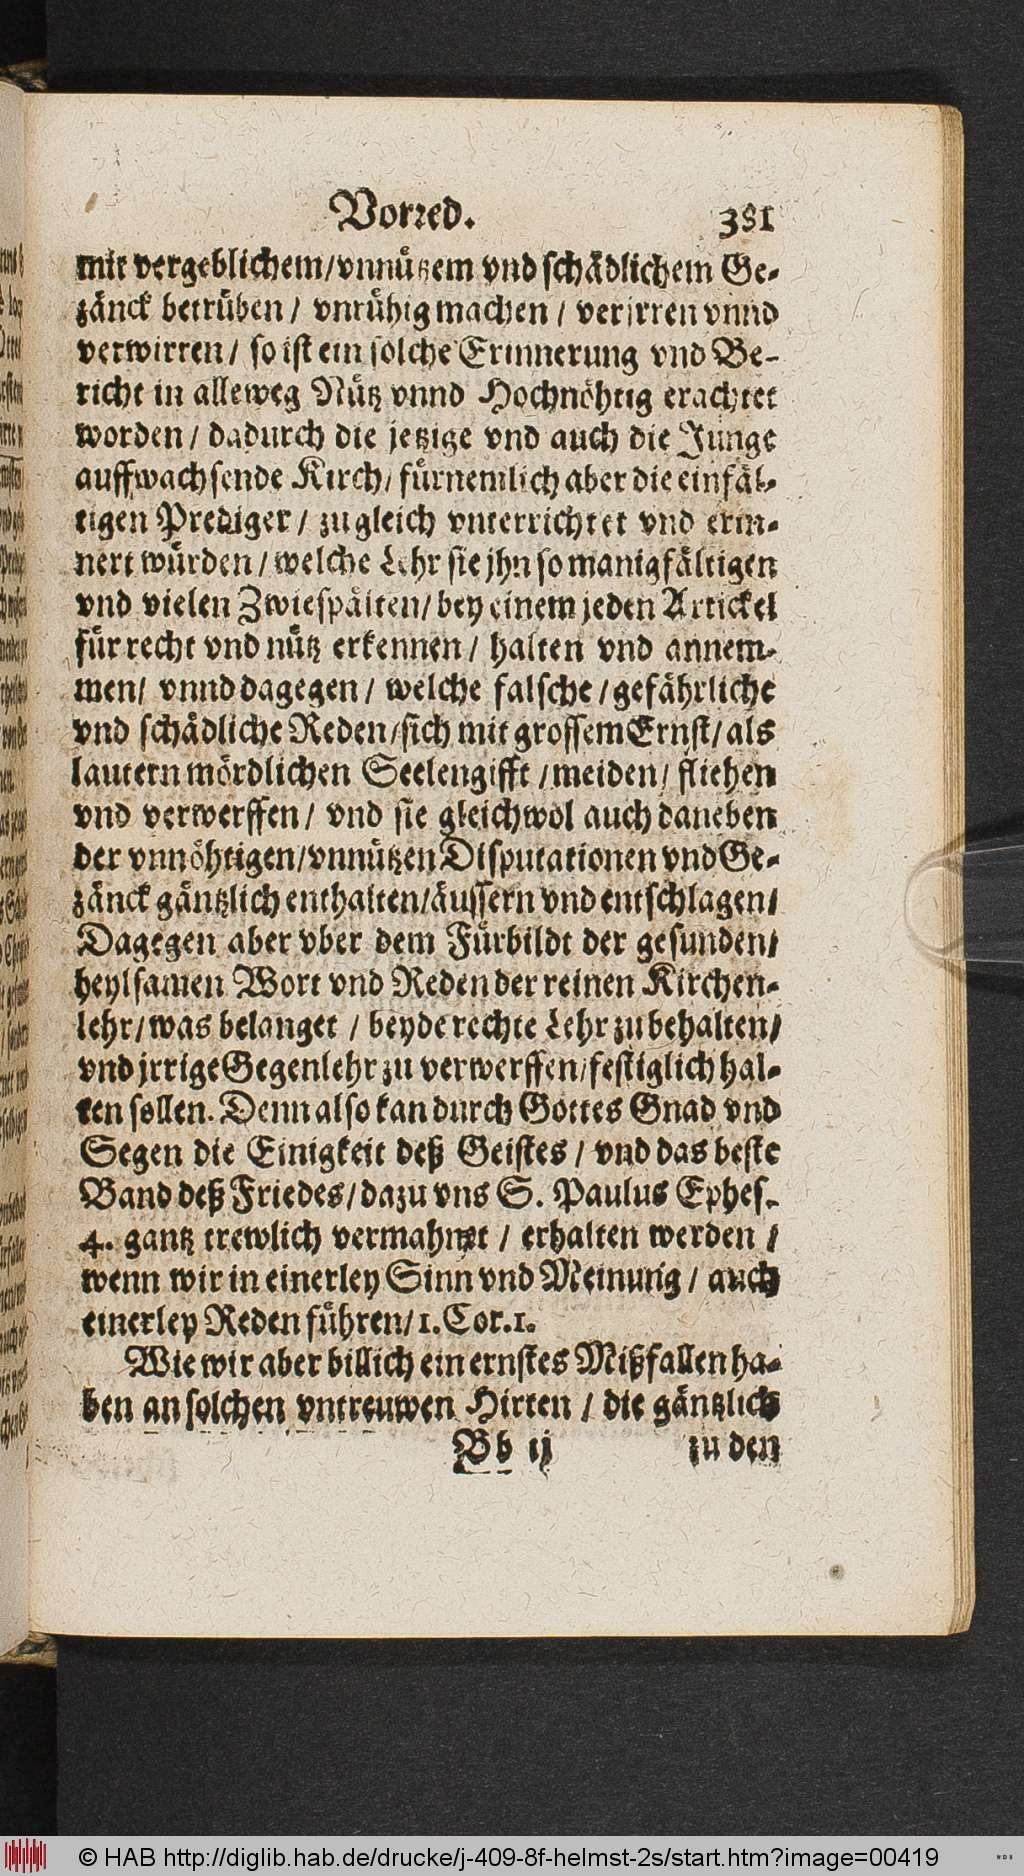 Vorred. 381
mit vergeblichem/vnnützem vnd schädlichem Ge-
zänck betrüben / vnrühig machen / verjrren vnnd
verwirren / so ist ein solche Erinnerung vnd Be-
richt in alleweg Nütz vnnd Hochnöhtig erachtet
worden / dadurch die jetzige vnd auch die Junge
auffwachsende Kirch / fürnemlich aber die einfäl-
tigen Prediger / zugleich vnterrichtet vnd erin-
nert würden / welche Lehr sie jhn so manigfältigen
vnd vielen Zwiespälten / bey einem jeden Artickel
für recht vnd nütz erkennen / halten vnd annem-
men / vnnd dagegen / welche falsche / gefährliche
vnd schädliche Reden / sich mit grossem Ernst / als
lautern mördlichen Seelengifft / meiden / fliehen
vnd verwerffen / vnd sie gleichwol auch daneben
der vnnöhtigen / vnnützen Disputationen vnd Ge-
zänck gäntzlich enthalten / äussern vnd entschlagen /
Dagegen aber vber dem Fürbildt der gesunden /
heylsamen Wort vnd Reden der reinen Kirchen-
lehr / was belanget / beyde rechte Lehr zubehalten /
vnd jrrige Gegenlehr zu verwerffen / festiglich hal-
ten sollen. Denn also kan durch Gottes Gnad vnd
Segen die Einigkeit deß Geistes / vnd das beste
Band deß Friedes / dazu vns S. Paulus Ephes.
4. gantz trewlich vermahnet / erhalten werden /
wenn wir in einerley Sinn vnd Meinung / auch
einerley Reden führen / 1. Cor. 1.
Wie wir aber billich ein ernstes Mißfallen ha-
ben an solchen vntreuwen Hirten / die gäntzlich
Bb ij zu den
© HAB http://diglib.hab.de/drucke/j-409-8f-helmst-2s/start.htm?image=00419